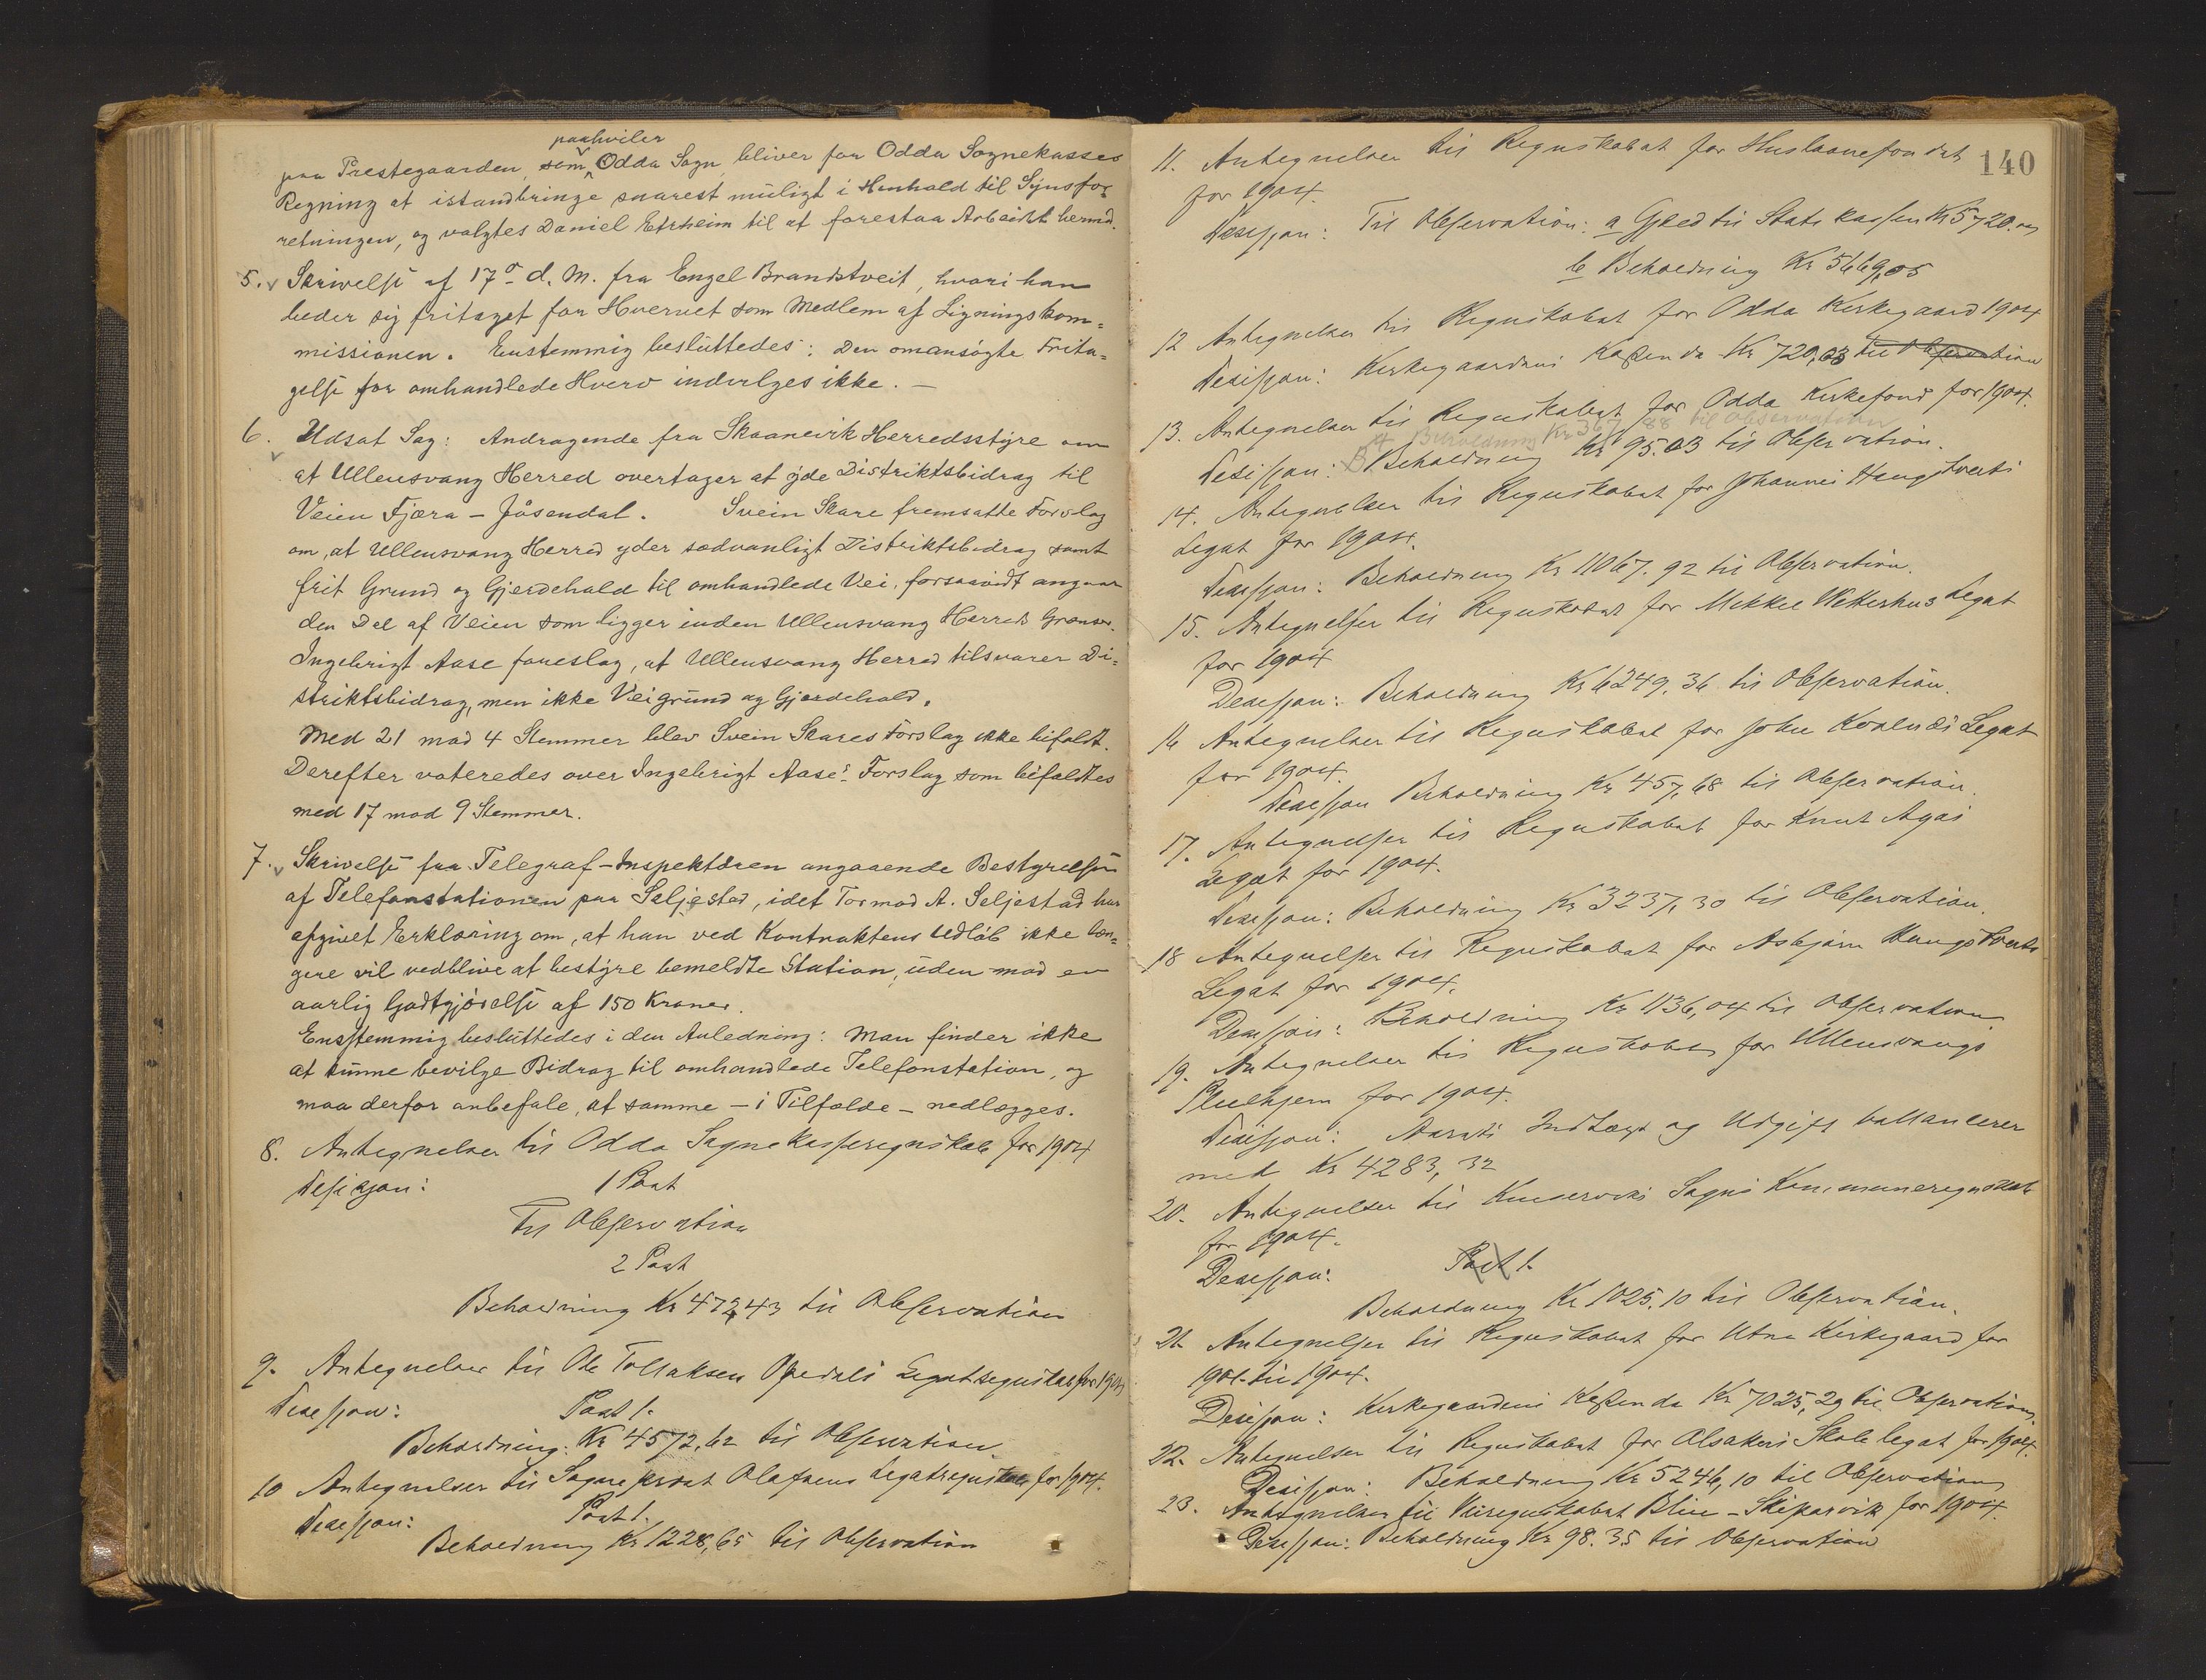 paahviler
paa Prestegaarden, som Odda Sogn bliver for Odda Sognekasses
Regning at istandbringe snarest muligt i Henhold til Synsfor-
retningen, og valgtes Daniel Eitrheim til at forestaa Arbeidet hermed.
5. Skrivelse af 17de d. M. fra Engel Brandstveit, hvori han
beder sig fritaget for Hvervet som Medlem af Ligningskom=
missionen. Enstemmig besluttedes: Den omansøgte Frita=
gelse for omhandlede Hverv indvilges ikke. —
6. Udsat Sag: Andragende fra Skaanevik Herredsstyre om
at Ullensvang Herred overtager at yde Distriktsbidrag til
Veien Fjæra – Jøsendal. Svein Skare fremsatte Forslag
om, at Ullensvang Herred yder sædvanligt Distriktsbidrag samt
frit Grund og Gjerdehold til omhandlede Vei, forsaavidt angaar
den Del af Veien som ligger inden Ullensvang Herreds Grænser.
Ingebrigt Aase foreslog, at Ullensvang Herred tilsvarer Di=
striktsbidrag, men ikke Veigrund og Gjerdehold.
Med 21 mod 4 Stemmer blev Svein Skares Forslag ikke bifaldt.
Derefter voteredes over Ingebrigt Aases Forslag som bifaldtes
med 17 mod 9 Stemmer.
7. Skrivelse fra Telegraf-Inspektøren angaaende Bestyrelsen
af Telefonstationen paa Seljestad, idet Tormod A. Seljestad har
afgivet Erklæring om, at han ved Kontraktens Udløb ikke læn=
gere vil vedblive at bestyre bemeldte Station, uden mod en
aarlig Godtgjørelse af 150 Kroner.
Enstemmig besluttedes i den Anledning: Man finder ikke
at kunne bevilge Bidrag til omhandlede Telefonstation, og
maa derfor anbefale, at samme – i Tilfælde – nedlægges.
8. Antegnelser til Odda Sognekasseregnskab for 1904
Desisjon: 1 Post
Til Observation
2 Post
Beholdning Kr 472,43 til Observation
9. Antegnelser til Ole Tollaksen Opedals Legatregnskab for 1904
Desesjon: Post 1.
Beholdning: Kr 4572,62 til Observation
10 Antegnelser til Sogneprest Olafsens Legatregnskab for 1904.
Desesjon: Post 1.
Beholdning Kr 1228,65 til Observation
140
11. Antegnelser til Regnskabet for Huslaanefondet
for 1904.
Desesjon: Til Observation: a Gjæld til Statskassen Kr 5720.00
b Beholdning Kr 5669,05
12 Antegnelser til Regnskabet for Odda Kirkegaard 1904
Desisjon: Kirkegaardens Kassen da Kr 720,03 til Observation
13. Antegnelser til Regnskabet for Odda Kirkefond for 1904.
A Beholdning Kr 367,88 til Observation
Desisjon: B Beholdning Kr 95.03 til Observation.
14. Antegnelser til Regnskabet for Johannes Haugstvedts
Legat for 1904.
Desesjon: Beholdning Kr 11067.92 til Observation.
15. Antegnelser til Regnskabet for Mikkel Wetterhus Legat
for 1904
Desesjon: Beholdning Kr 6249,36 til Observation.
16 Antegnelser til Regnskabet for John Kvalnes Legat
for 1904.
Desesjon Beholdning Kr 457,68 til Observation.
17. Antegnelser til Regnskabet for Knut Agas
Legat for 1904.
Desesjon: Beholdning Kr 3237,30 til Observation.
18 Antegnelser til Regnskabet for Asbjørn Haugstvedts
Legat for 1904.
Desesjon: Beholdning Kr 1136,04 til Observation
19. Antegnelser til Regnskabet for Ullensvangs
Pleiehjem for 1904.
Desisjon: Aarets Indtægt og Udgift ballancerer
med Kr 4283,32
20. Antegnelser til Kinserviks Sogns Kommuneregnskab
for 1904.
Desesjon: Post 1.
Beholdning Kr 1025.10 til Observation.
21. Antegnelser til Regnskabet for Utne Kirkegaard for
1901 til 1904.
Desisjon: Kirkegaardens Kassen da Kr 7025,29 til Observation.
22. Antegnelser til Regnskabet for Alsakers Skolelegat for 1904.
Desisjon: Beholdning Kr 5246,10 til Observation
23. Antegnelser til Veiregnskabet Blie – Skiparvik for 1904.
Desesjon: Beholdning Kr 98.35 til Observation